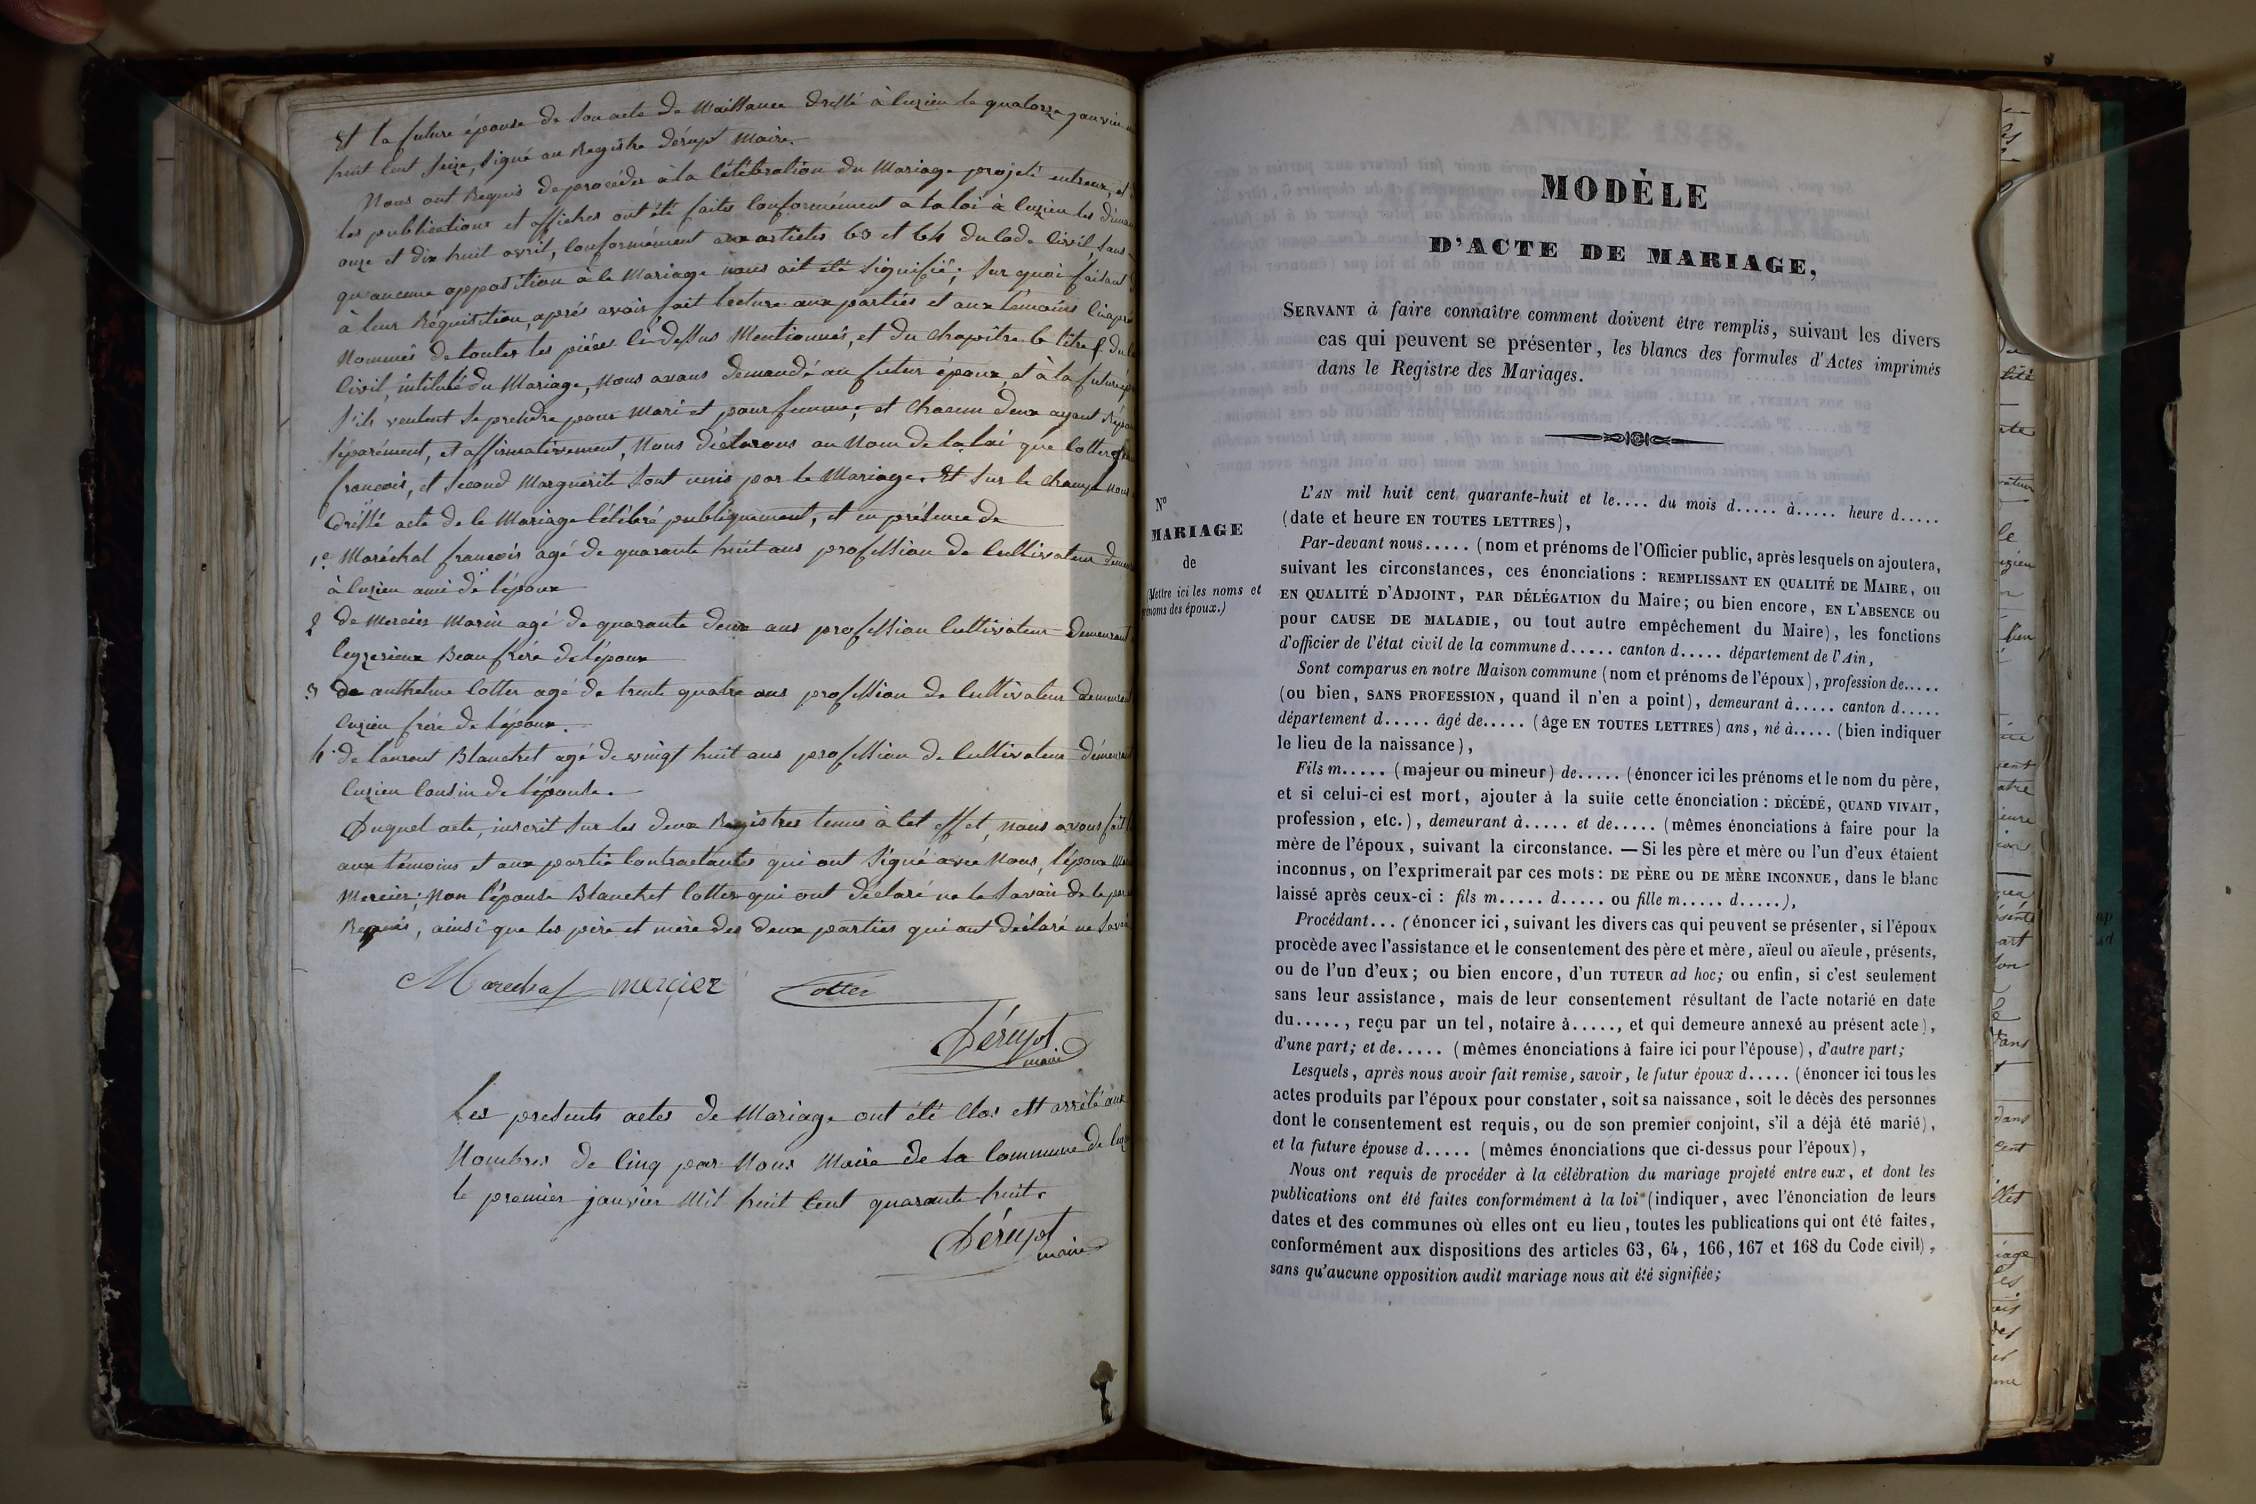 Et la future épouse de son acte de Naissance dressé à Cuzieu le quatorze janvier
huit cent seize, signé au Registre Dérupt Maire.
Nous ont Requis de procéder à la Célébration du Mariage projeté entreux, et
les publications et affiches ont été faites Conformément a la loi à Cuzieu les
onze et dix huit avril, Conformément aux articles 63 et 64 du Code Civil, sans
qu'aucune opposition à le Mariage nous ait été signifié; Sur quoi faisant
à leur Réquisition, après avoir fait lecture aux parties et aux témoins
Nommés de toutes les pièces Ci-dessus Mentionnés, et du Chapitre 6 titre 5 du
Civil, intitulé du Mariage, Nous avons demandé au futur époux et à la future
s'ils veulent se prendre pour Mari et pour femme, et chacun deux ayant
séparément, et affirmativement, Nous déclarons au Nom de la loi que Cotter
françois, et Second Marguerite sont unis par le Mariage. Et sur le Champ nous
dréssé acte de le Mariage Célébré publiquement, et en présence de
1º Maréchal françois agé de quarante huit ans profession de Cultivateur
à Cuzieu ami de l'époux
2 de Mercier Marin agé de quarante deux ans profession Cultivateur Demeurant
Ceyzerieux Beau frère de l'époux
3 de anthelme Cotter agé de trente quatre ans profession de Cultivateur
Cuzieu frère de l'époux.
4. de laurent Blanchet agé de vingt huit ans profession de Cultivateur
Cuzieu Cousin de l'épouse.
Duquel acte, inscrit sur les deux Registres tenus à Cet effet, nous avons fait
aux témoins et aux partie Contractantes qui ont signé avec Nous, l'époux
Mercier; Non l'épouse Blanchet Cotter qui ont déclaré ne le savoir de le
Requis, ainsi que les père et mère des deux parties qui ont déclaré ne
Marechal mercier Cotter
Dérupt
maire
Les présents actes de Mariage ont été Clos ett arrêté aux
Nombres de Cinq par Nous Maire de la Commune de
le premier janvier Mil huit Cent quarante huit.
Dérupt
maire
MODÈLE
D'ACTE DE MARIAGE,
SERVANT à faire connaître comment doivent être remplis, suivant les divers
cas qui peuvent se présenter, les blancs des formules d'Actes imprimés
dans le Registre des Mariages.
N°
MARIAGE
de
(Mettre ici les noms et
prénoms des époux.)
L'AN mil huit cent quarante-huit et le.... du mois d..... à..... heure d.....
(date et heure EN TOUTES LETTRES),
Par-devant nous..... (nom et prénoms de l'Officier public, après lesquels on ajoutera,
suivant les circonstances, ces énonciations : REMPLISSANT EN QUALITÉ DE MAIRE, OU
EN QUALITÉ D'ADJOINT, PAR DÉLÉGATION du Maire; ou bien encore, EN L'ABSENCE OU
pour CAUSE DE MALADIE, ou tout autre empêchement du Maire), les fonctions
d'officier de l'état civil de la commune d..... canton d..... département de l'Ain,
Sont comparus en notre Maison commune (nom et prénoms de l'époux), profession de.....
(ou bien, SANS PROFESSION, quand il n'en a point), demeurant à..... canton d.....
département d..... âgé de..... (âge EN TOUTES LETTRES) ans, né à..... (bien indiquer
le lieu de la naissance),
Fils m..... (majeur ou mineur) de..... (énoncer ici les prénoms et le nom du père,
et si celui-ci est mort, ajouter à la suite cette énonciation : DÉCÉDÉ, QUAND VIVAIT,
profession, etc.), demeurant à..... et de..... (mêmes énonciations à faire pour la
mère de l'époux, suivant la circonstance. — Si les père et mère ou l'un d'eux étaient
inconnus, on l'exprimerait par ces mots : DE PÈRE OU DE MÈRE INCONNUE, dans le blanc
laissé après ceux-ci : fils m..... d..... ou fille m..... d.....),
Procédant... (énoncer ici, suivant les divers cas qui peuvent se présenter, si l'époux
procède avec l'assistance et le consentement des père et mère, aïeul ou aïeule, présents,
ou de l'un d'eux; ou bien encore, d'un TUTEUR ad hoc; ou enfin, si c'est seulement
sans leur assistance, mais de leur consentement résultant de l'acte notarié en date
du....., reçu par un tel, notaire à....., et qui demeure annexé au présent acte),
d'une part; et de..... (mêmes énonciations à faire ici pour l'épouse), d'autre part;
Lesquels, après nous avoir fait remise, savoir, le futur époux d..... (énoncer ici tous les
actes produits par l'époux pour constater, soit sa naissance, soit le décès des personnes
dont le consentement est requis, ou de son premier conjoint, s'il a déjà été marié),
et la future épouse d..... (mêmes énonciations que ci-dessus pour l'époux),
Nous ont requis de procéder à la célébration du mariage projeté entre eux, et dont les
publications ont été faites conformément à la loi (indiquer, avec l'énonciation de leurs
dates et des communes où elles ont eu lieu, toutes les publications qui ont été faites,
conformément aux dispositions des articles 63, 64, 166, 167 et 168 du Code civil),
sans qu'aucune opposition audit mariage nous ait été signifiée;